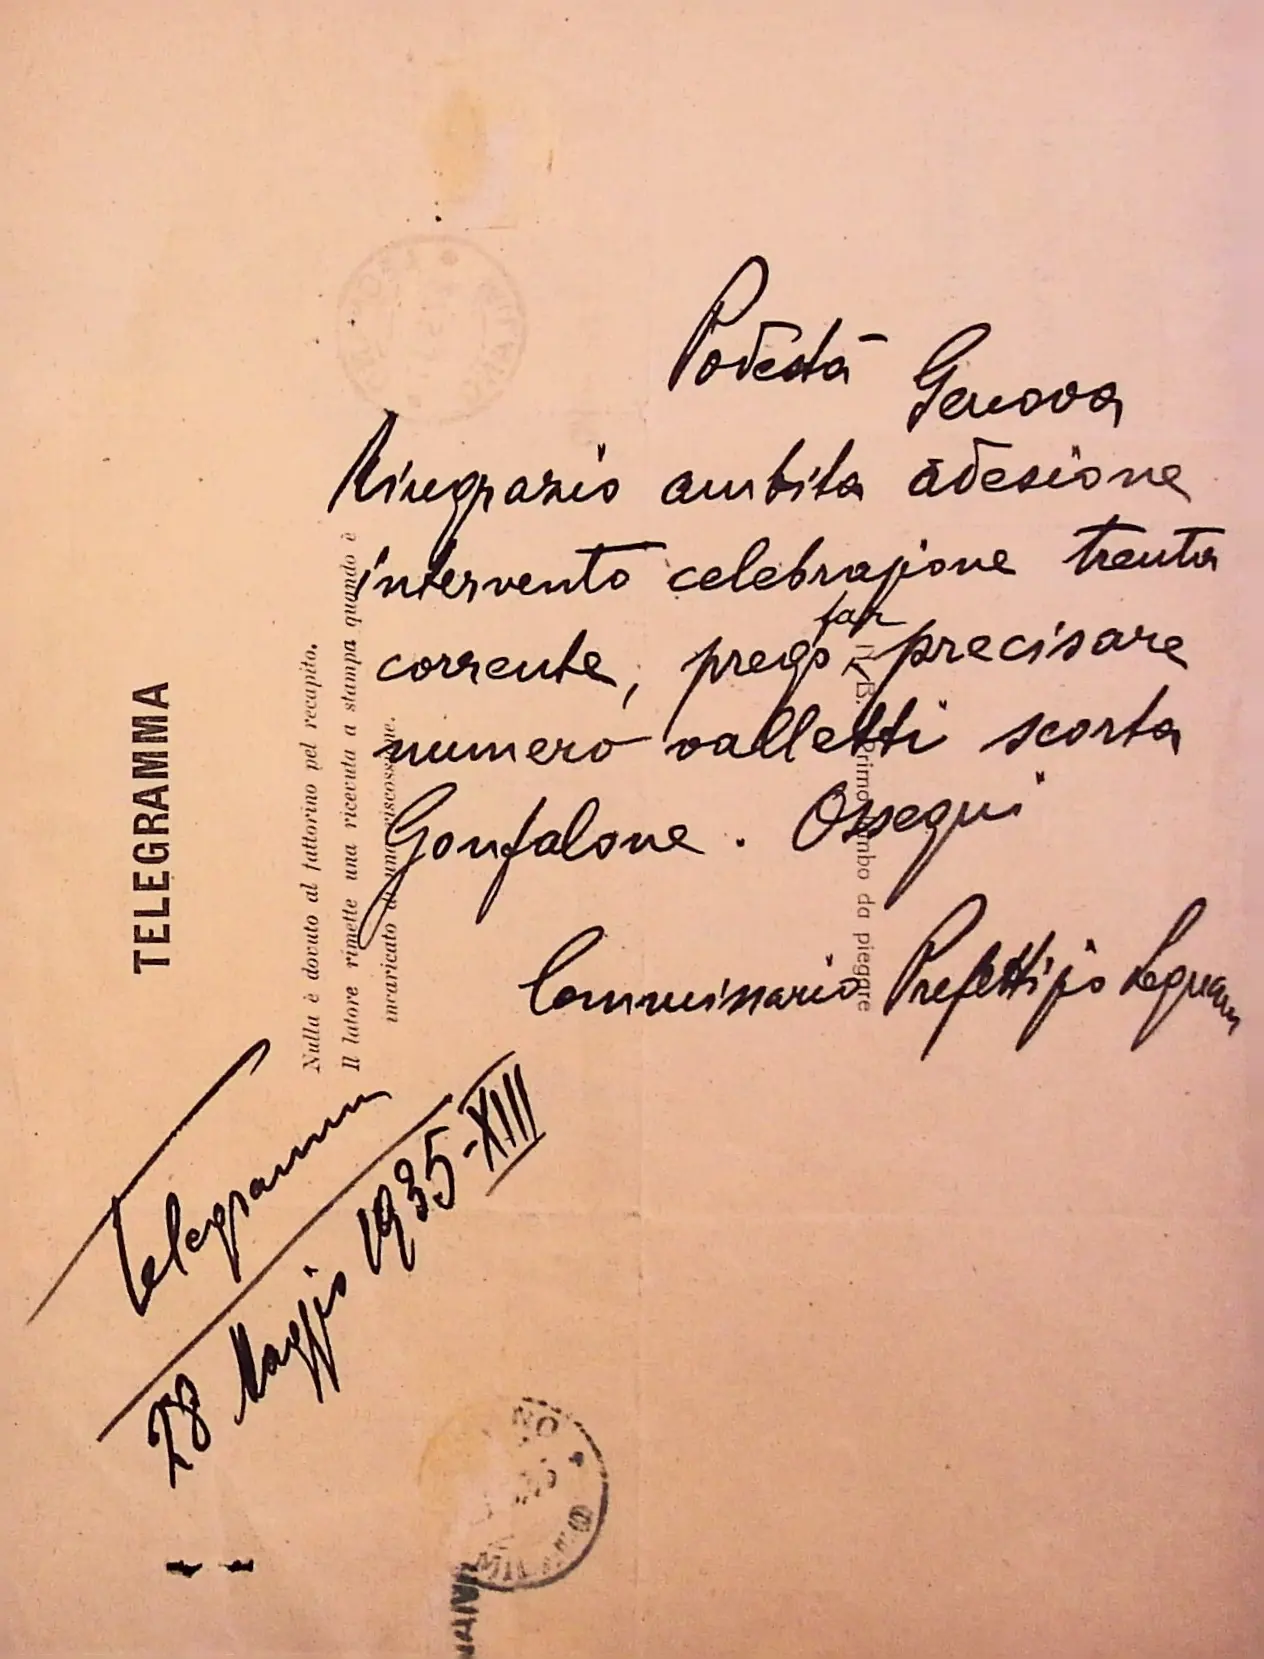 Podestà Genova
Ringrazio ambita adesione
intervento celebrazione trenta
corrente, prego far precisare
numero valletti scorta
Gonfalone. Ossequi
Commissario Prefettizio Legnano
TELEGRAMMA
Nulla è dovuto al fattorino pel recapito.
Il latore rimette una ricevuta a stampa quando è
incaricato di una riscossione.
N. B. Primo lembo da piegare
Telegramma
28 Maggio 1935-XIII